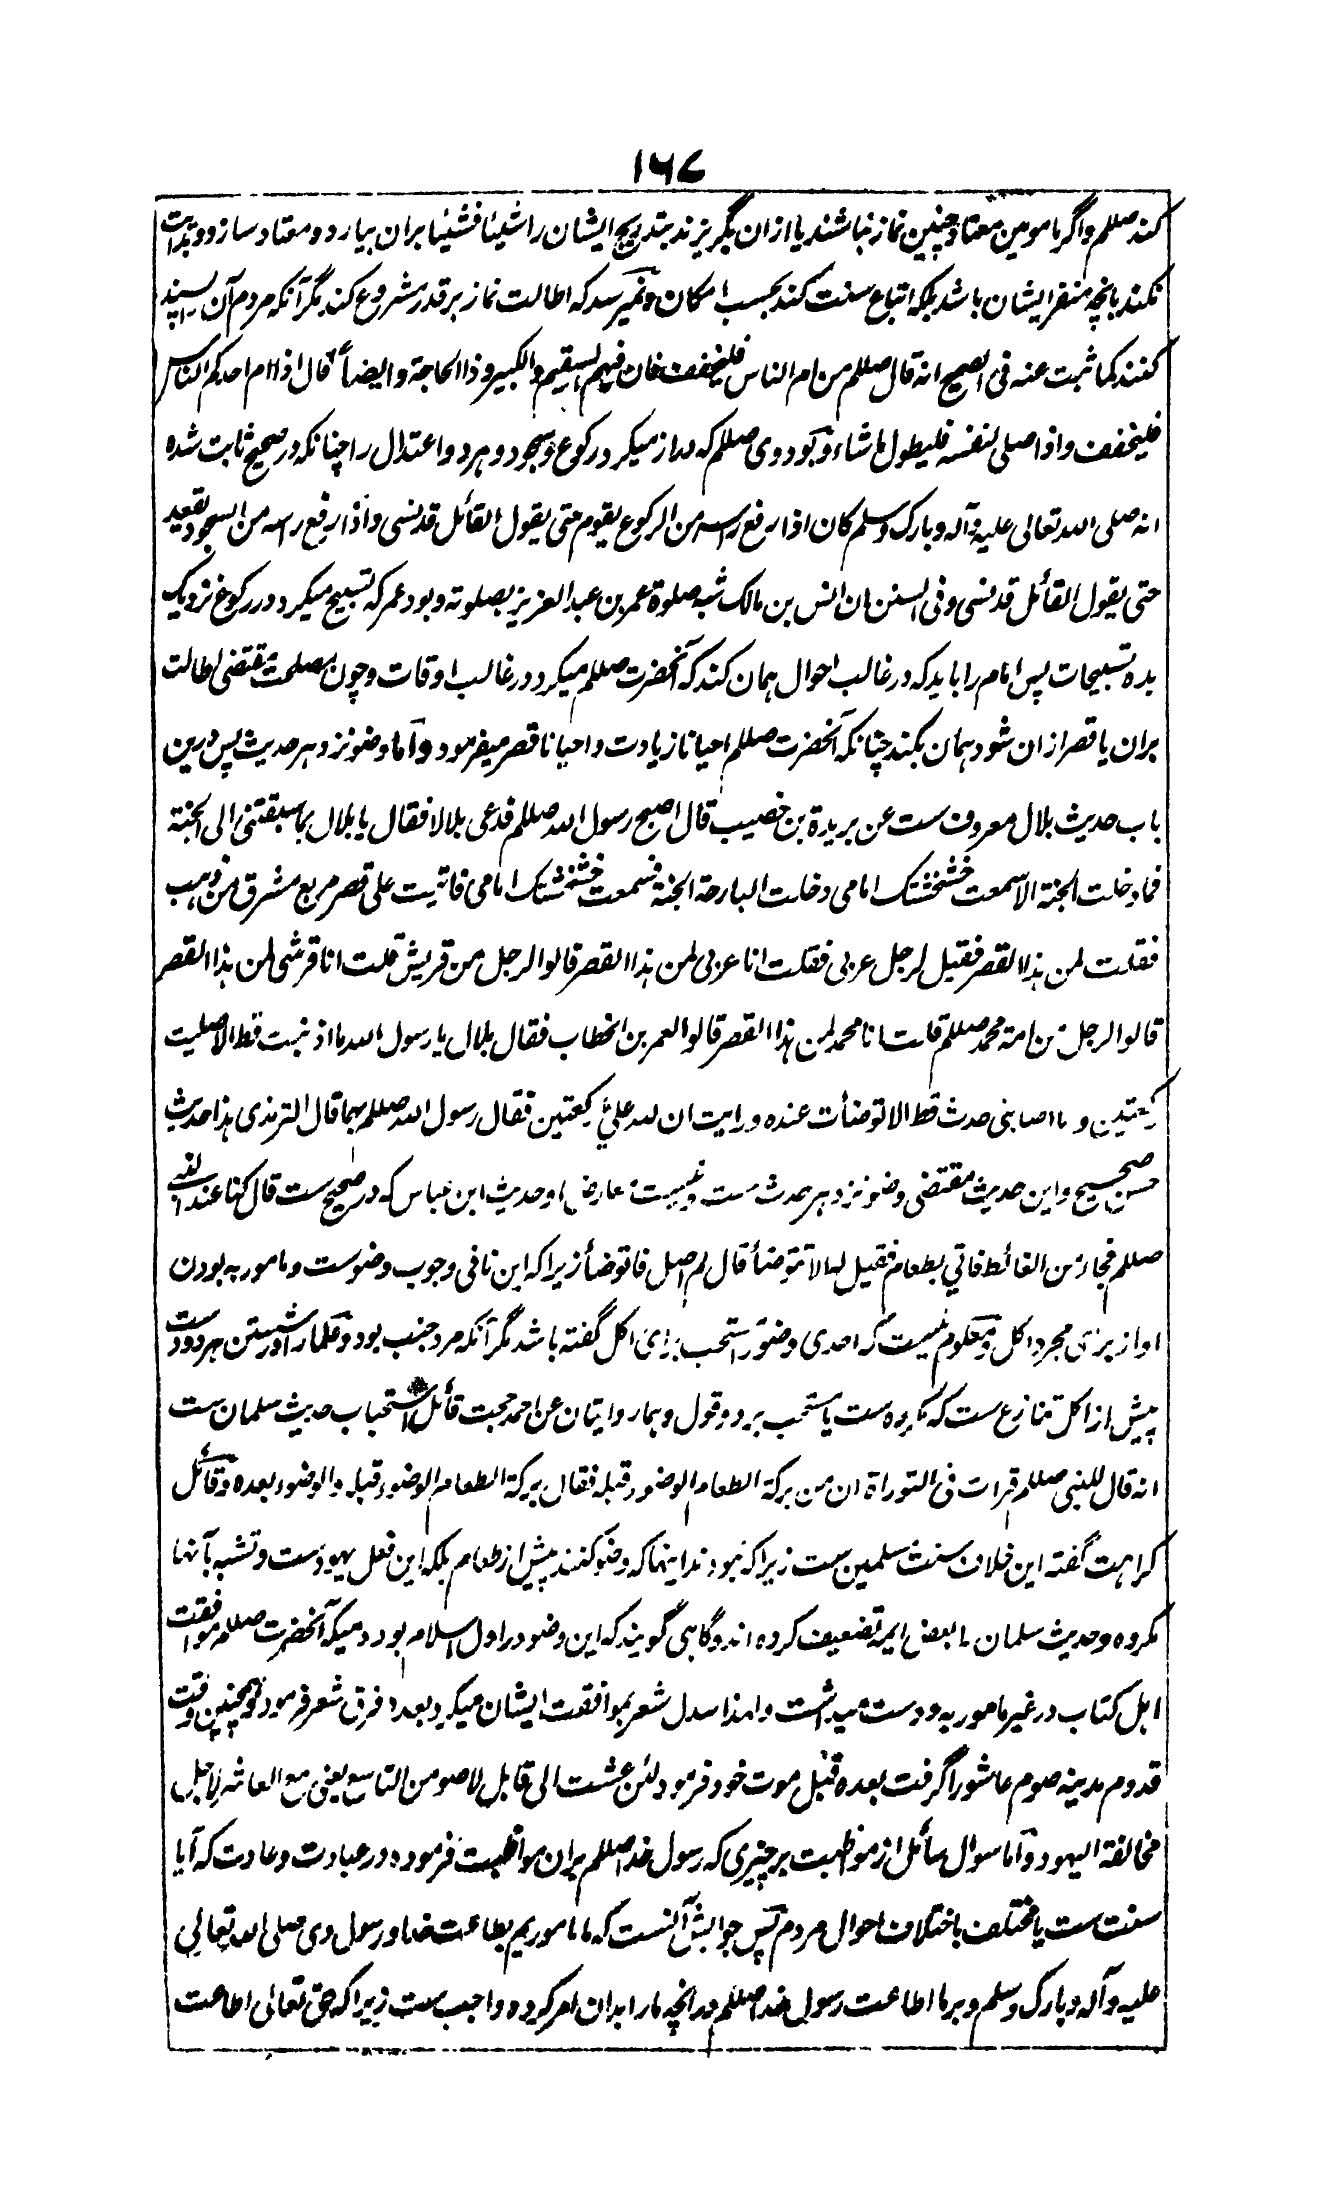 ۱۶۷
کند صللم و اگر مامومین معتاد چنین نماز نباشند یا ازان بگریزند بتدریج ایشان را شیئا فشیئا بران بیارد و معتاد سازد و بدایت
نکند بانچه منفر ایشان باشد بلکه اتباع سنت کند بحسب امکان و نمیرسد که اطالت نماز بر قدر مشروع کند مگر آنکه مردم آن پسند
کنند کما ثبت عنه فی الصحیح انه قال صللم من ام الناس فلیخفف فان فیهم السقیم و الکبیر و ذا الحاجة و ایضاً قال اذا ام احدکم الناس
فلیخفف و اذا صلی لنفسه فلیطول ما شاء و بود وی صللم که دراز میکرد رکوع و سجود و هر دو اعتدال را چنانکه در صحیح ثابت شده
انه صلی الله تعالی علیه و آله و بارک و سلم کان اذا رفع راسه من الرکوع یقوم حتی یقول القائل قد نسی و اذا رفع راسه من السجود یقعد
حتی یقول القائل قد نسی و فی السنن ان انس بن مالک شبه صلوة عمر بن عبد العزیز بصلوته و بود عمر که تسبیح میکرد در رکوع نزدیک
بده تسبیحات پس امام را باید که در غالب احوال همان کند که آنحضرت صللم میکرد در غالب اوقات و چون مصلحت مقتضی اطالت
بران یا قصر ازان شود همان بکند چنانکه آنحضرت صللم احیانا زیادت و احیانا قصر میفرمود و اما وضو نزد هر حدیث پس درین
باب حدیث بلال معروف ست عن بریدة بن خصیب قال اصبح رسول الله صللم فدعی بلالا فقال یا بلال بما سبقتنی الی الجنة
فما دخلت الجنة الا سمعت خشخشتک امامی دخلت البارحة الجنة فسمعت خشخشتک امامی فاتیت علی قصر مربع مشرف من ذهب
فقلت لمن هذا القصر فقیل لرجل عربی فقلت انا عربی لمن هذا القصر قالوا لرجل من قریش قلت انا قرشی لمن هذا القصر
قالوا لرجل من امة محمد صللم قلت انا محمد لمن هذا القصر قالوا لعمر بن الخطاب فقال بلال یا رسول الله ما اذنبت قط الا صلیت
رکعتین و ما اصابنی حدث قط الا توضأت عنده و رایت ان لله علیّ رکعتین فقال رسول الله صللم بهما قال الترمذی هذا حدیث
حسن صحیح و این حدیث مقتضی وضو نزد هر حدث ست و نیست معارض او حدیث ابن عباس که در صحیح ست قال کنا عند النبی
صللم فجاء من الغائط فاتي بطعام فقیل له الا تتوضأ قال لم اصل فاتوضأ زیرا که این نافی وجوب وضوست و مامور به بودن
او از برای مجرد اکل و معلوم نیست که احدی وضو را مستحب برای اکل گفته باشد مگر آنکه مرد جنب بود و علما را در شستن هر دو دست
پیش از اکل تنازع ست که مکروه ست یا مستحب بر دو قول و هما روایتان عن احمد حجت قائل استحباب حدیث سلمان ست
انه قال للنبی صللم قرات فی التوراة ان من برکة الطعام الوضوء قبله فقال برکة الطعام الوضوء قبله و الوضوء بعده و قائل
کراهت گفته این خلاف سنت مسلمین ست زیرا که نبودند اینها که وضو کنند پیش از طعام بلکه این فعل یهودست و تشبه بآنها
مکروه و حدیث سلمان را بعض ایمه تضعیف کرده اند و گاهی گویند که این وضو در اول اسلام بود دمیکه آنحضرت صللم موافقت
اهل کتاب در غیر مامور به دوست میداشت و لهذا سدل شعر بموافقت ایشان میکرد بعده فرق شعر فرمود و همچنین وقت
قدوم مدینه صوم عاشورا گرفت بعده قبل موت خود فرمود لئن عشت الی قابل لاصومن التاسع یعنی مع العاشر لاجل
مخالفة الیهود و اما سوال سائل از مواظبت بر چیزی که رسول خدا صللم بران مواظبت فرموده در عبادت و عادت که آیا
سنت ست یا مختلف باختلاف احوال مردم پس جوابش آنست که ما ماموریم بطاعت خدا و رسول وی صلی الله تعالی
علیه و آله و بارک و سلم و بر ما اطاعت رسول خدا صللم در آنچه ما را بدان امر کرده واجب ست زیرا که حق تعالی اطاعت